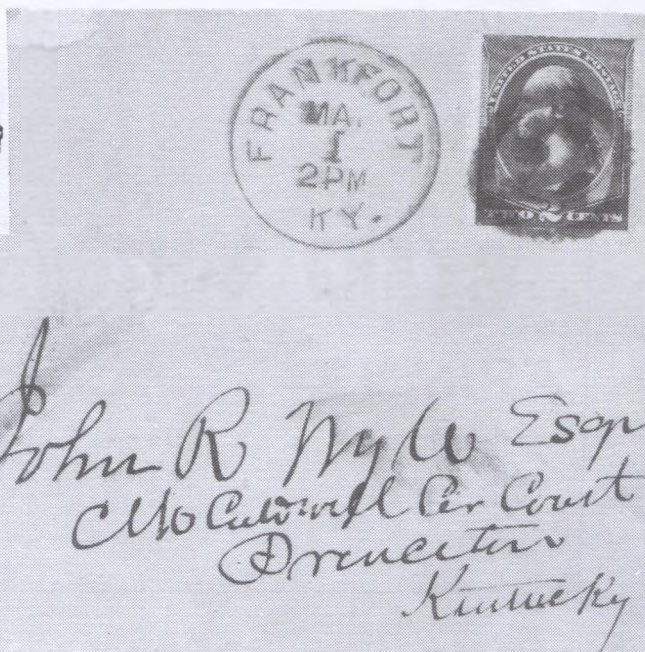 FRANKFORT
MA.
1
2PM
KY.
UNITED STATES POSTAGE
TWO 2 CENTS
John R Wyle Esqr
Clk Caldwell Cir Court
Princeton
Kentucky